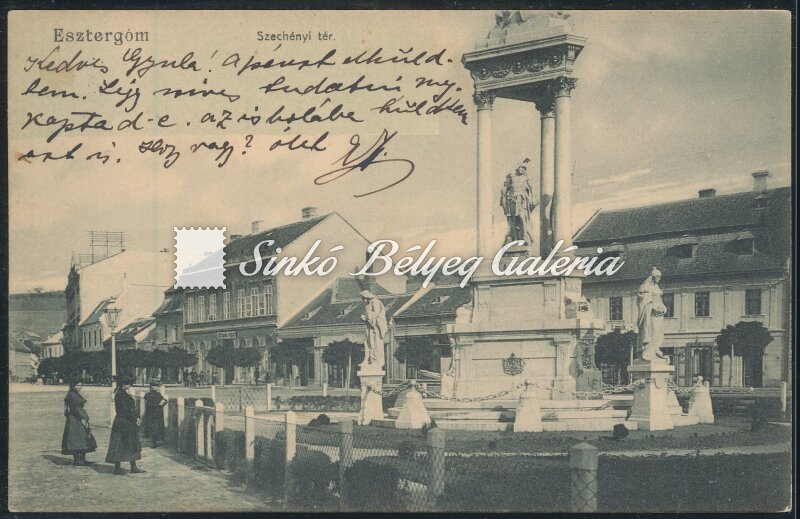 Esztergóm
Szechényi tér.
Kedves Gyula! A pénzt elküld-
tem. Légy szives tudatni meg-
kaptad-e. az iskolába küldtem
azt is. Hogy vagy? ölel
Sinkó Bélyeg Galéria